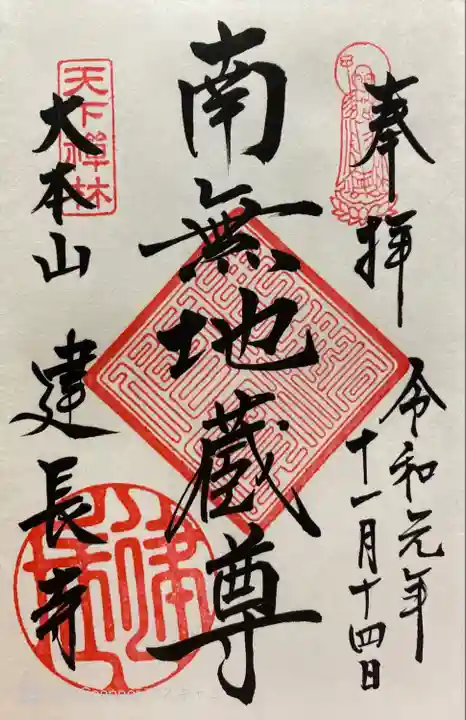 奉拝
令和元年
十一月十四日
南無地蔵尊
天下禅林
大本山
建長寺